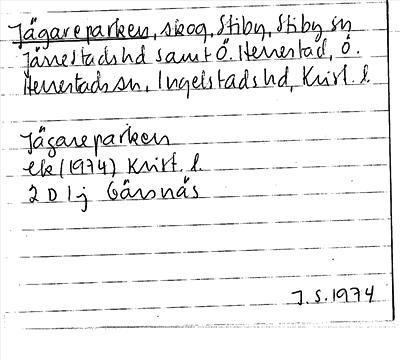 Jägareparken, skog, Stiby, Stiby sn
Järrestads hd samt Ö. Herrestad, Ö.
Herrestads sn, Ingelstads hd, Krist. l.
Jägareparken
ek (1974) Krist. l.
2 D 1 j Gärsnäs
J. S. 1974